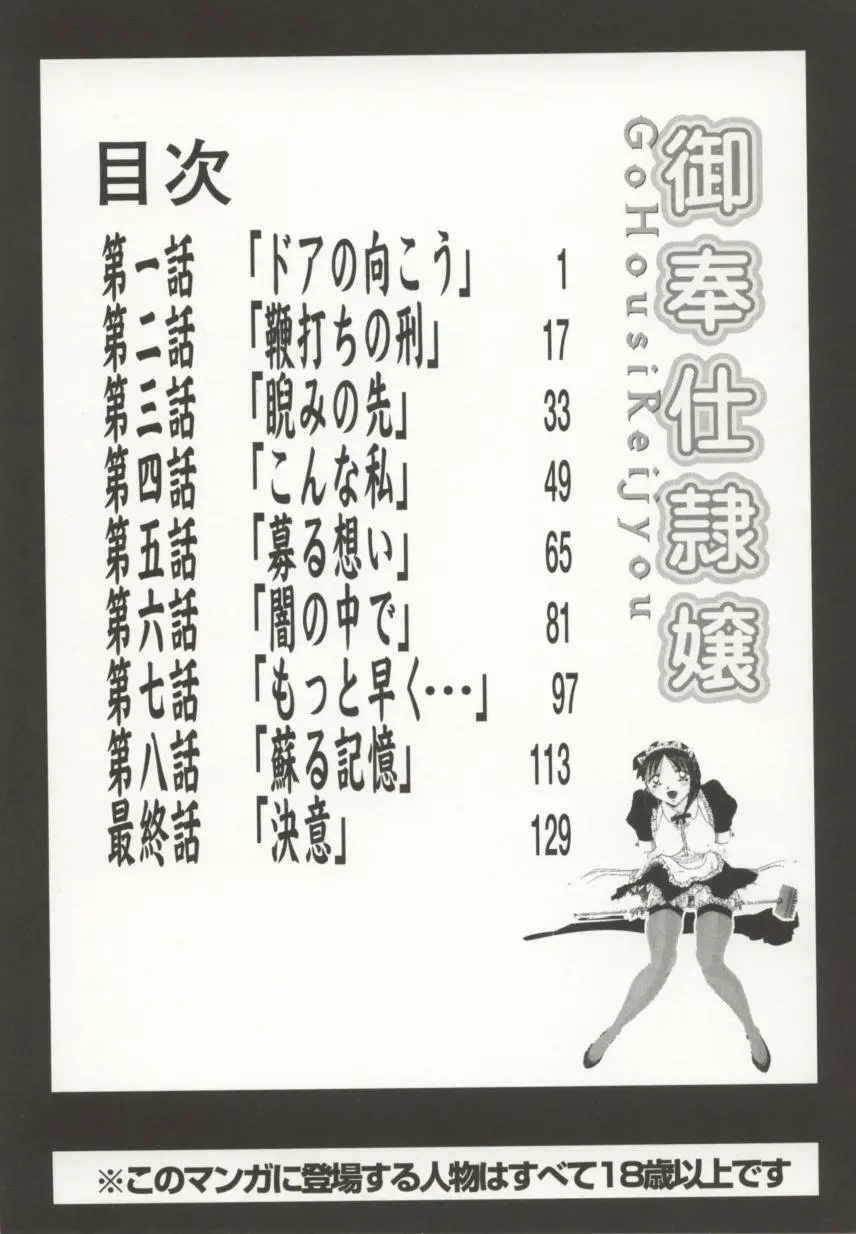 御奉仕隷嬢
GoHousiReijyou
目次
第一話 「ドアの向こう」 1
第二話 「鞭打ちの刑」 17
第三話 「睨みの先」 33
第四話 「こんな私」 49
第五話 「募る想い」 65
第六話 「闇の中で」 81
第七話 「もっと早く・・・」 97
第八話 「蘇る記憶」 113
最終話 「決意」 129
※このマンガに登場する人物はすべて18歳以上です